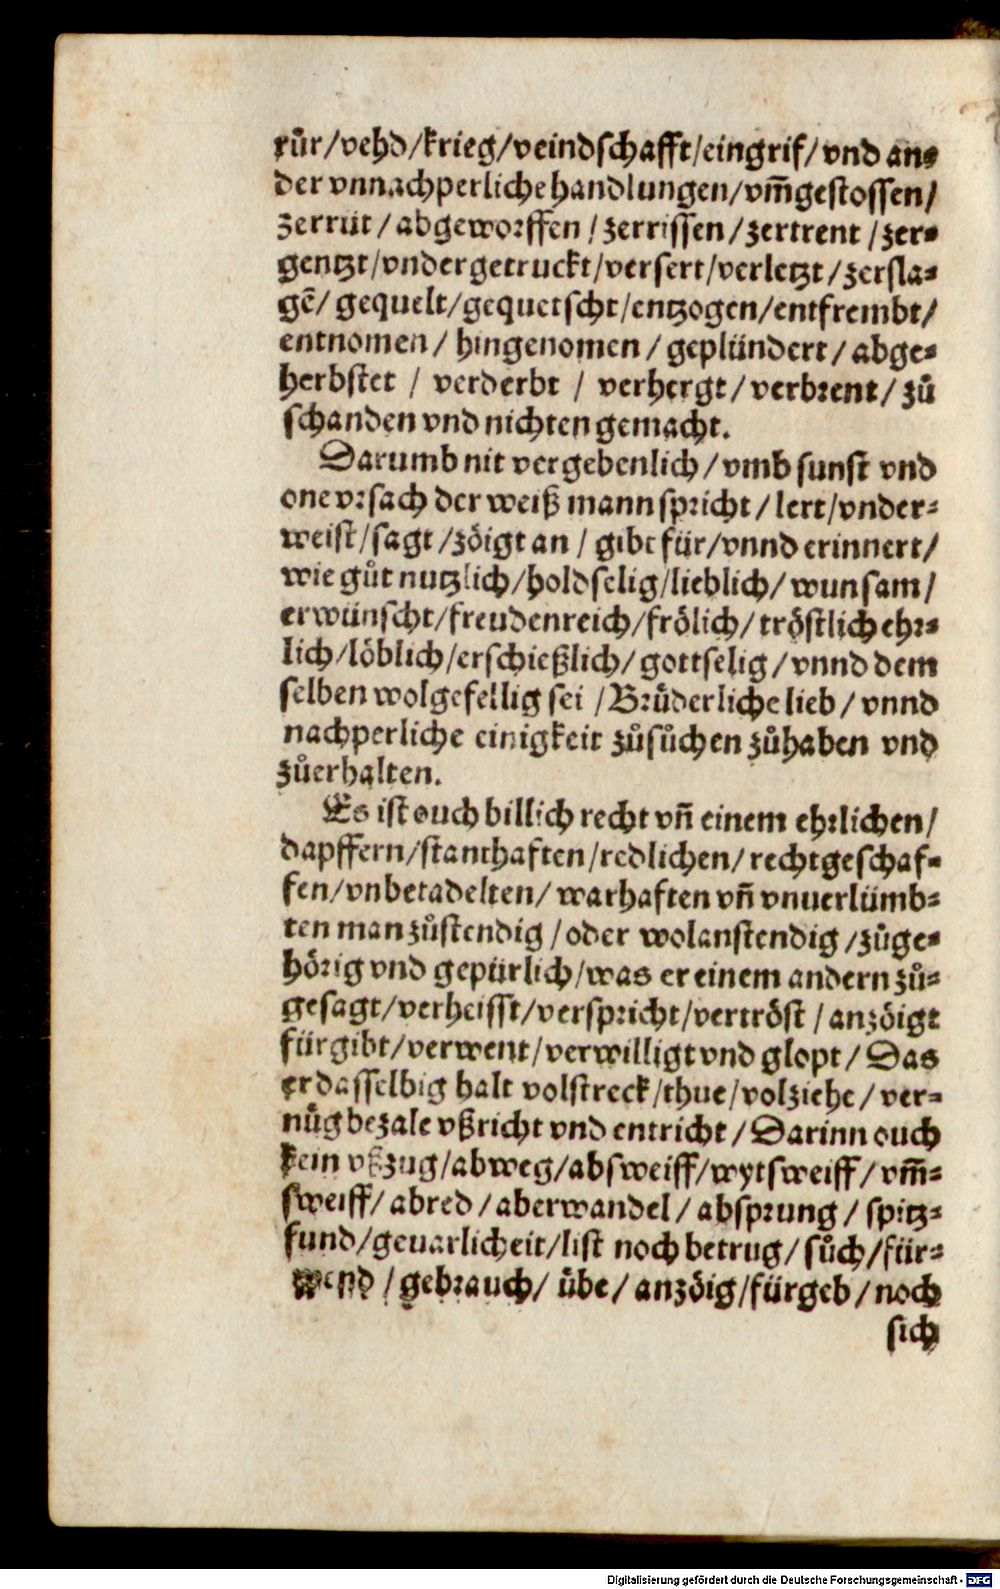 růr/vehd/krieg/veindschafft/eingrif/vnd an⸗
der vnnachperliche handlungen/vm̄gestossen/
zerrüt/abgeworffen/zerrissen/zertrent/zer⸗
gentzt/vndergetruckt/versert/verletzt/zersla⸗
gē/gequelt/gequetscht/entzogen/entfrembt/
entnomen/hingenomen/geplündert/abge⸗
herbstet/verderbt/verhergt/verbrent/zů
schanden vnd nichten gemacht.
Darumb nit vergebenlich/vmb sunst vnd
one vrsach der weiß mann spricht/lert/vnder⸗
weist/sagt/zöigt an/gibt für/vnnd erinnert/
wie gůt nutzlich/holdselig/lieblich/wunsam/
erwünscht/freudenreich/frölich/tröstlich ehr⸗
lich/löblich/erschießlich/gottselig/vnnd dem
selben wolgefellig sei/Brůderliche lieb/vnnd
nachperliche einigkeit zůsůchen zůhaben vnd
zůerhalten.
Es ist ouch billich recht vn̄ einem ehrlichen/
dapffern/stanthaften/redlichen/rechtgeschaf⸗
fen/vnbetadelten/warhaften vn̄ vnuerlümb⸗
ten man zůstendig/oder wolanstendig/zůge⸗
hörig vnd gepürlich/was er einem andern zů⸗
gesagt/verheisst/verspricht/vertröst/anzöigt
fürgibt/verwent/verwilligt vnd glopt/Das
er dasselbig halt volstreck/thue/volziehe/ver⸗
nůg bezale vßricht vnd entricht/Darinn ouch
kein vßzug/abweg/absweiff/wytsweiff/vm̄⸗
sweiff/abred/aberwandel/absprung/spitz⸗
fund/geuarlicheit/list noch betrug/sůch/für⸗
wend/gebrauch/übe/anzöig/fürgeb/noch
sich
Digitalisierung gefördert durch die Deutsche Forschungsgemeinschaft - DFG